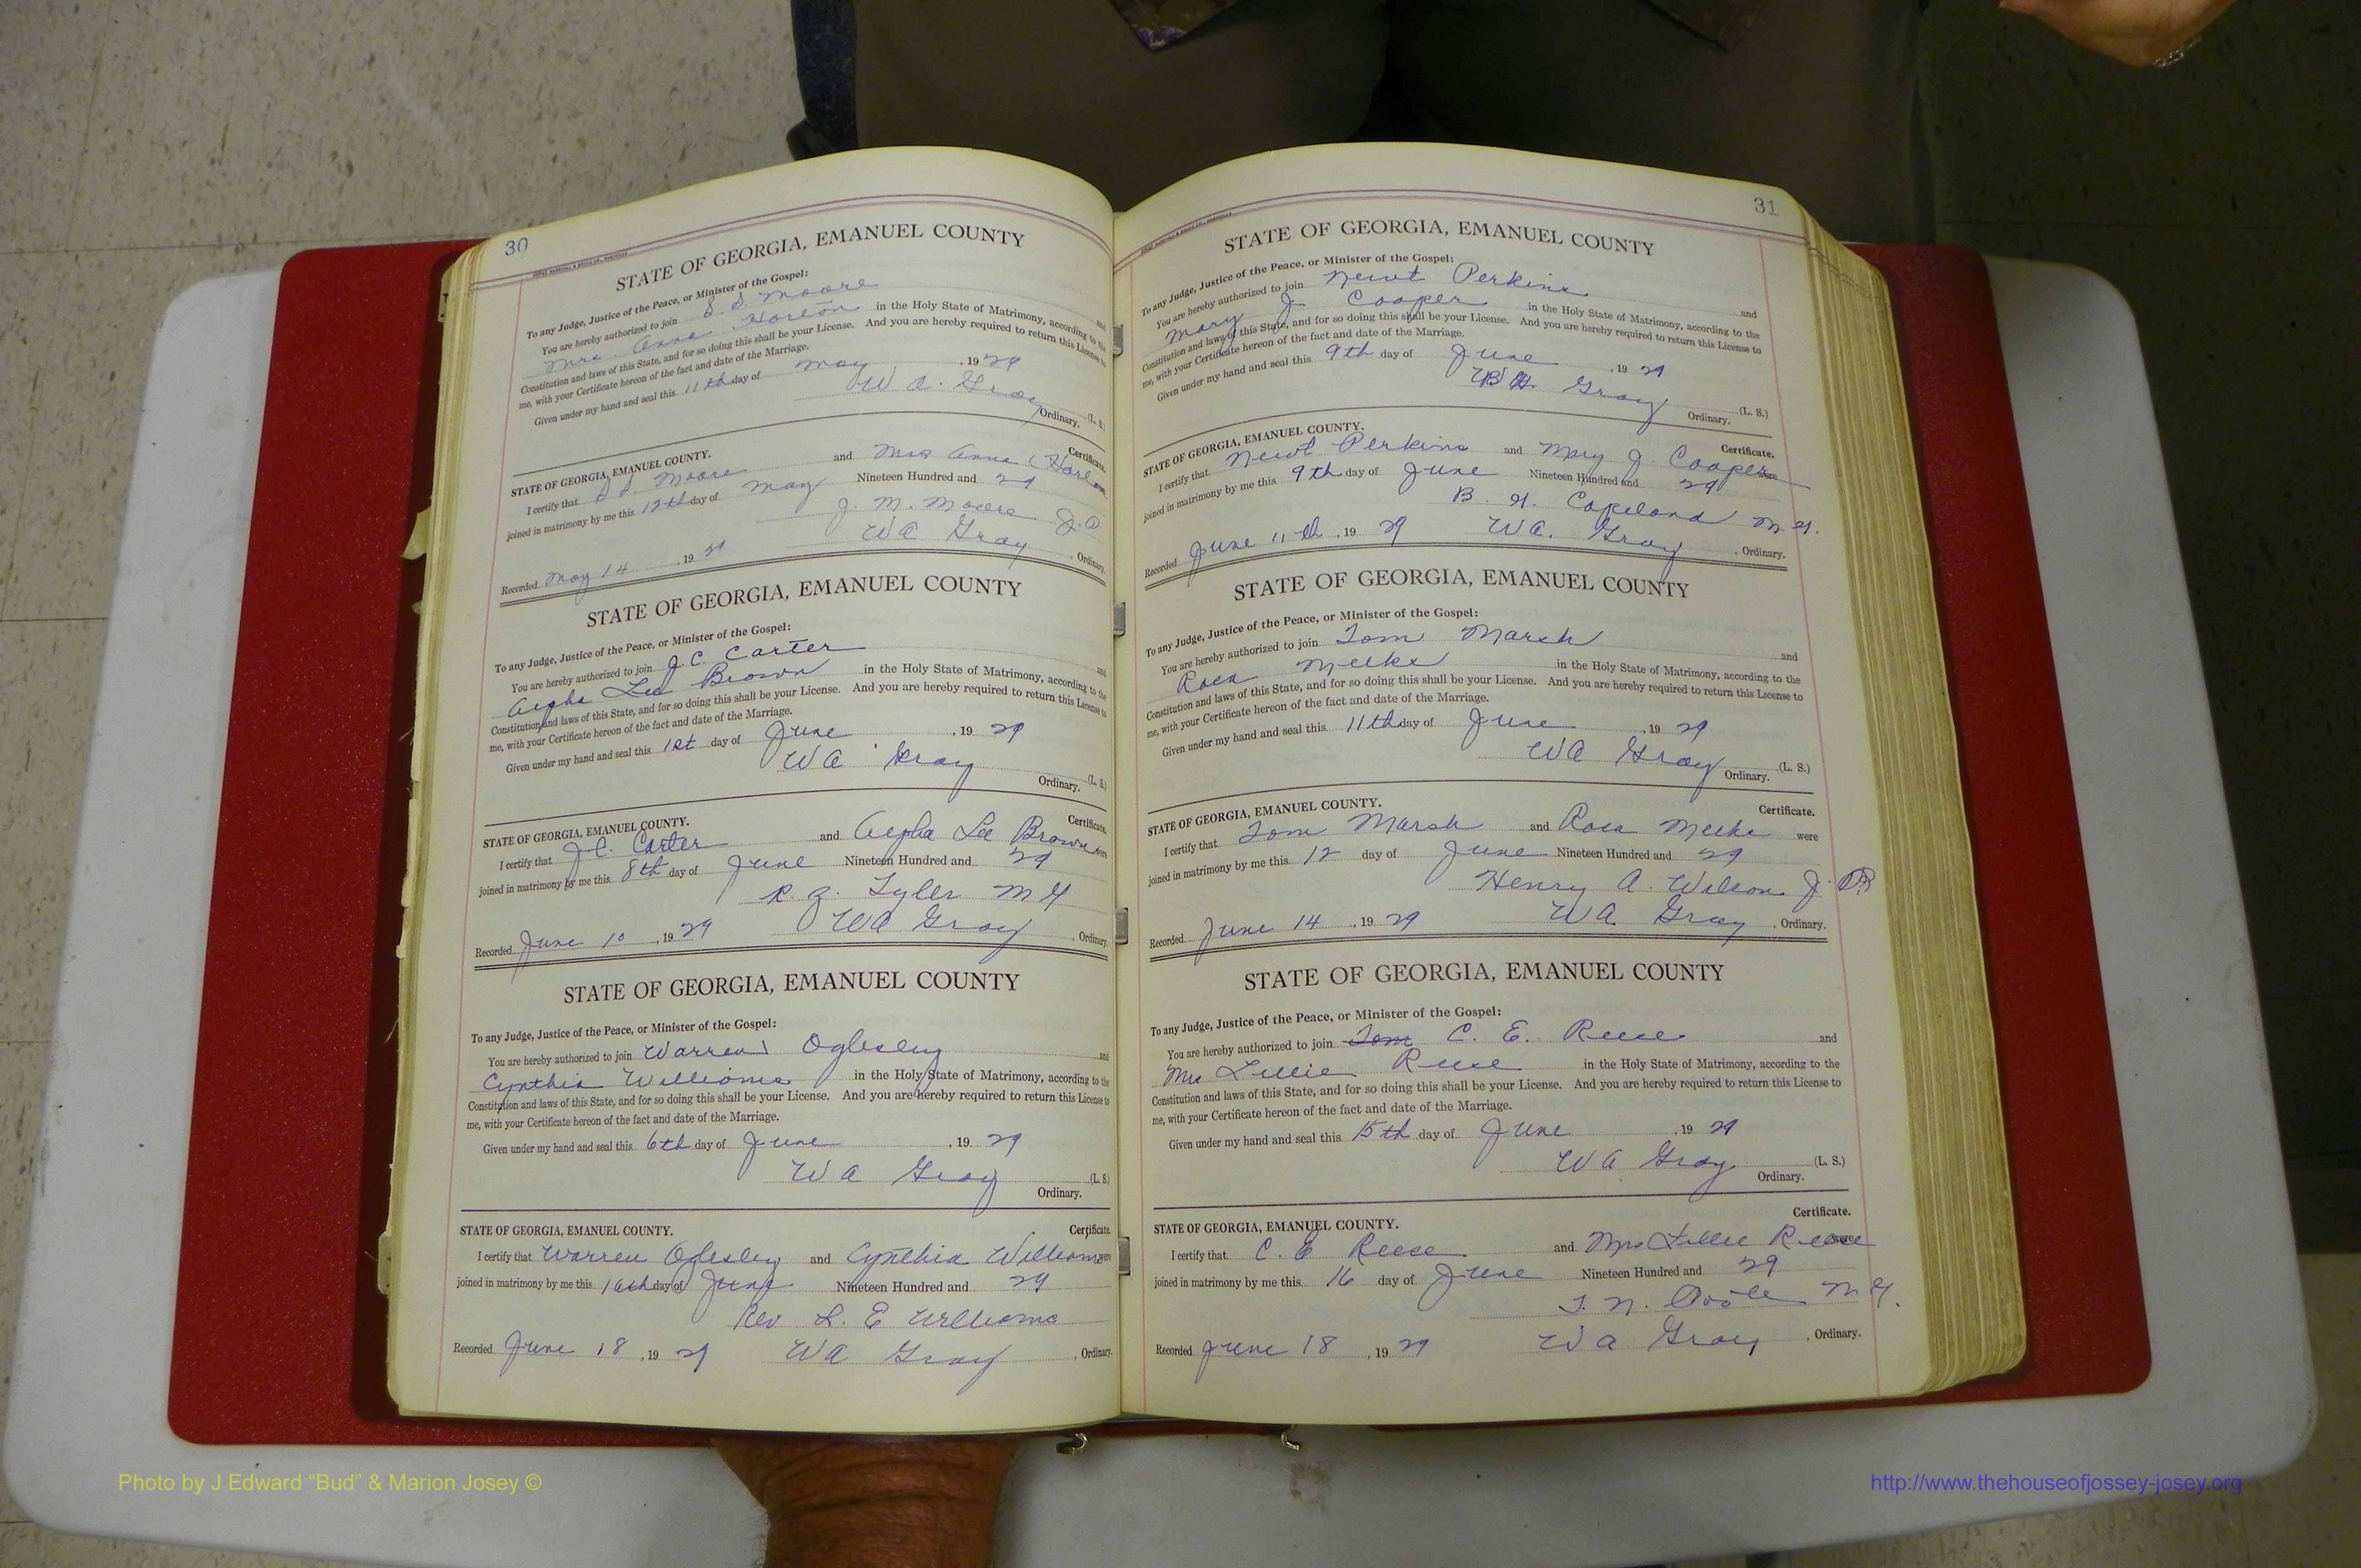 30
STATE OF GEORGIA, EMANUEL COUNTY
To any Judge, Justice of the Peace, or Minister of the Gospel:
You are hereby authorized to join S. S. Moore and
Mrs. Anna in the Holy State of Matrimony, according to the
Constitution and laws of this State, and for so doing this shall be your License. And you are hereby required to return this License to
me, with your Certificate hereon of the fact and date of the Marriage.
Given under my hand and seal this 11th day of May , 1929
W A. Gray (L. S.)
Ordinary.
STATE OF GEORGIA, EMANUEL COUNTY. Certificate.
I certify that S. S. Moore and Mrs Anna
joined in matrimony by me this 12th day of May Nineteen Hundred and 29
J. M. Moore J. P
Recorded May 14 , 1929 W A Gray , Ordinary.
STATE OF GEORGIA, EMANUEL COUNTY
To any Judge, Justice of the Peace, or Minister of the Gospel:
You are hereby authorized to join J. C. Carter and
Lee Brown in the Holy State of Matrimony, according to the
Constitution and laws of this State, and for so doing this shall be your License. And you are hereby required to return this License to
me, with your Certificate hereon of the fact and date of the Marriage.
Given under my hand and seal this 1st day of June , 1929
W A Gray (L. S.)
Ordinary.
STATE OF GEORGIA, EMANUEL COUNTY. Certificate.
I certify that J. C. Carter and Lee Brown were
joined in matrimony by me this 8th day of June Nineteen Hundred and 29
R. Z. Tyler M G
Recorded June 10 , 1929 W A Gray , Ordinary.
STATE OF GEORGIA, EMANUEL COUNTY
To any Judge, Justice of the Peace, or Minister of the Gospel:
You are hereby authorized to join Warren Oglesby and
Cynthia Williams in the Holy State of Matrimony, according to the
Constitution and laws of this State, and for so doing this shall be your License. And you are hereby required to return this License to
me, with your Certificate hereon of the fact and date of the Marriage.
Given under my hand and seal this 6th day of June , 1929
W A Gray (L. S.)
Ordinary.
STATE OF GEORGIA, EMANUEL COUNTY. Certificate.
I certify that Warren Oglesby and Cynthia Williams were
joined in matrimony by me this 16th day of June Nineteen Hundred and 29
Rev L. E Williams
Recorded June 18 , 1929 W A Gray , Ordinary.
31
STATE OF GEORGIA, EMANUEL COUNTY
To any Judge, Justice of the Peace, or Minister of the Gospel:
You are hereby authorized to join Newt Perkins and
Mary J. Cooper in the Holy State of Matrimony, according to the
Constitution and laws of this State, and for so doing this shall be your License. And you are hereby required to return this License to
me, with your Certificate hereon of the fact and date of the Marriage.
Given under my hand and seal this 9th day of June , 1929
Gray (L. S.)
Ordinary.
STATE OF GEORGIA, EMANUEL COUNTY. Certificate.
I certify that Newt Perkins and Mary J. Cooper were
joined in matrimony by me this 9th day of June Nineteen Hundred and 29
B. H. Copeland M. G.
Recorded June 11th , 1929 W A. Gray , Ordinary.
STATE OF GEORGIA, EMANUEL COUNTY
To any Judge, Justice of the Peace, or Minister of the Gospel:
You are hereby authorized to join Tom Marsh and
Rosa Meeks in the Holy State of Matrimony, according to the
Constitution and laws of this State, and for so doing this shall be your License. And you are hereby required to return this License to
me, with your Certificate hereon of the fact and date of the Marriage.
Given under my hand and seal this 11th day of June , 1929
W A Gray (L. S.)
Ordinary.
STATE OF GEORGIA, EMANUEL COUNTY. Certificate.
I certify that Tom Marsh and Rosa Meeks were
joined in matrimony by me this 12 day of June Nineteen Hundred and 29
Henry A. Wilson J. P.
Recorded June 14 , 1929 W A Gray , Ordinary.
STATE OF GEORGIA, EMANUEL COUNTY
To any Judge, Justice of the Peace, or Minister of the Gospel:
You are hereby authorized to join Tom C. E. Reese and
Mrs Lillie Reese in the Holy State of Matrimony, according to the
Constitution and laws of this State, and for so doing this shall be your License. And you are hereby required to return this License to
me, with your Certificate hereon of the fact and date of the Marriage.
Given under my hand and seal this 15th day of June , 1929
W A Gray (L. S.)
Ordinary.
STATE OF GEORGIA, EMANUEL COUNTY. Certificate.
I certify that C. E Reese and Mrs Lillie Reese were
joined in matrimony by me this 16 day of June Nineteen Hundred and 29
T. N. Poole M G.
Recorded June 18 , 1929 W A Gray , Ordinary.
Photo by J Edward “Bud” & Marion Josey ©
http://www.thehouseofjossey-josey.org